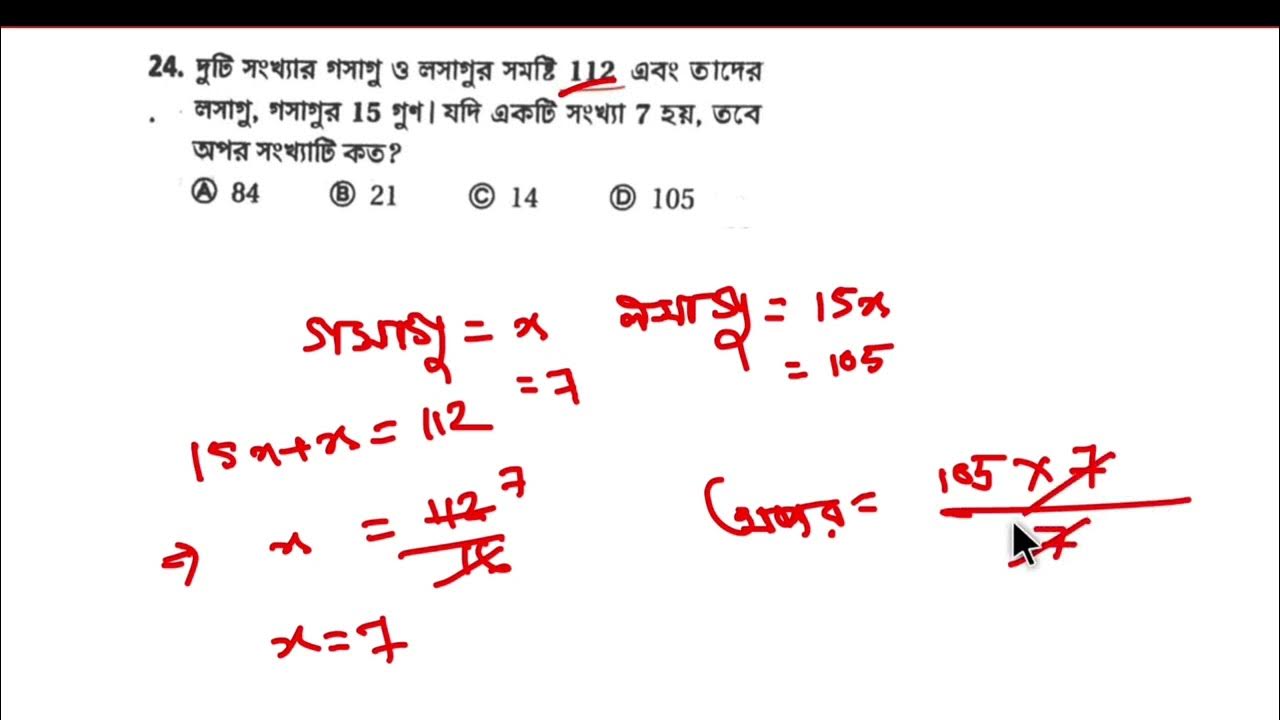 24. দুটি সংখ্যার গসাগু ও লসাগুর সমষ্টি 112 এবং তাদের
লসাগু, গসাগুর 15 গুণ। যদি একটি সংখ্যা 7 হয়, তবে
অপর সংখ্যাটি কত?
Ⓐ 84 Ⓑ 21 Ⓒ 14 Ⓓ 105
গসাগু = x লসাগু = 15x
= 7 = 105
15x+x = 112
⇒ x = 112 7
16
x = 7
অপর = 105 × 7
7